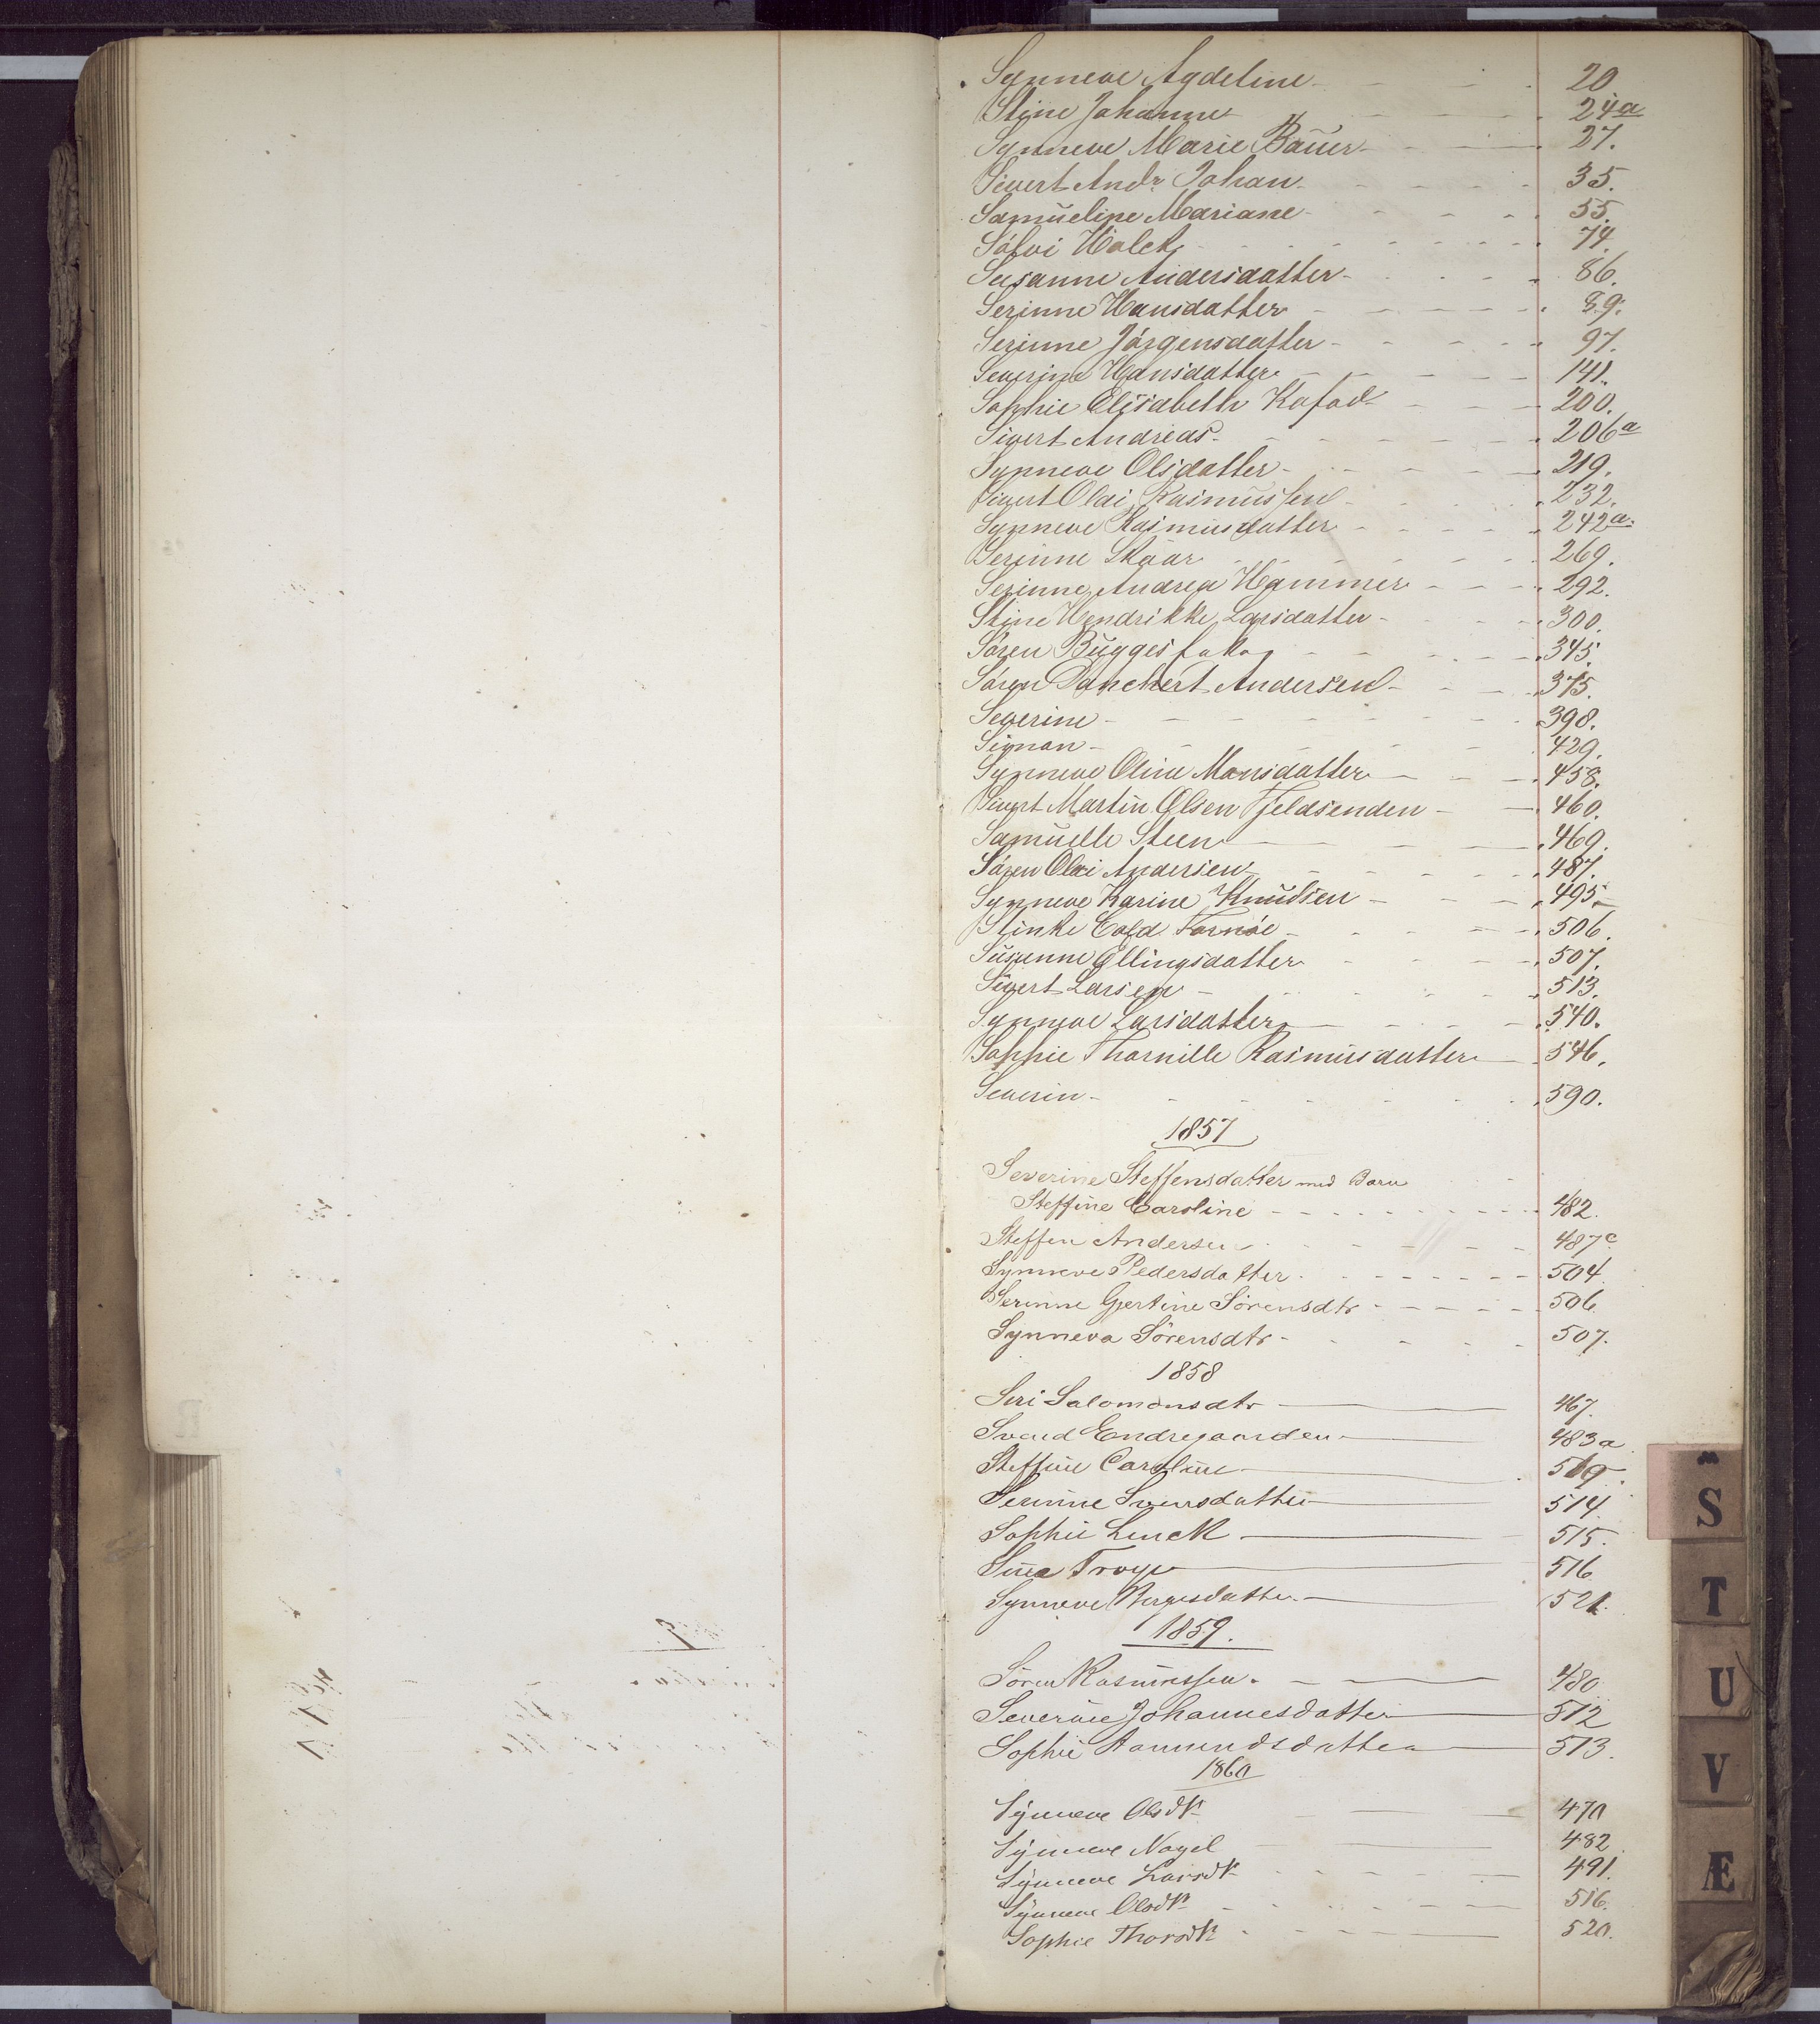 Synneve Agdeline 20
Stine Johanne 24a
Synneve Marie Baüer 27.
Sivert Andr. Johan 35.
Samüeline Mariane 55.
Sólvi Holck 74.
Susanne Andersdatter 86.
Serinne Hansdatter 89.
Serinne Jórgensdatter 97.
Severine Hansdatter 141.
Sophie Elisabeth Kofod 200.
Sivert Andreas 206a
Synneve Olsdatter 219.
Sivert Olai Rasmussen 232.
Synneve Rasmusdatter 242a.
Serinne Skaar 269.
Serinne Andrea Hammer 292.
Stine Hendrikke Larsdatter 300.
Sóren 345.
Sóren Danckert Andersen 375.
Severine 398.
Simon 429.
Synneve Oline Monsdatter 458.
Sivert Martin Olsen Fjeldsenden 460.
Samuelle Steen 469.
Sóren Olai Andersen 487.
Synneve Karine Knudsen 495.
Stinke Cold Tornóe 506.
Susanne Ellingsdatter 507.
Sivert Larsen 513.
Synneve Larsdatter 540.
Sophie Thornille Rasmusdatter 546.
Severin 590.
1857
Severine Steffensdatter med Barn
Steffine Caroline 482.
Steffen Andersen 487c
Synneve Pedersdatter 504
Serinne Gjertine Sörensdtr 506
Synneva Sörensdtr 507.
1858
Siri Salomonsdtr 467.
Svend Endregaarden 483a
Steffine Caroline 509.
Serinne Sversdatter 514.
Sophie Linck 515.
Sina Troye 516
Synneve Børgesdatter 521.
1859.
Sören Rasmussen 480
Severine Johannesdatter 512
Sophie Aamundsdatter 513.
1860
Synneve Olsdtr 470
Synneve Nagel 482
Synneve Larsdtr 491.
Synneve Olsdtr 516.
Sophie Thorsdtr 520.
S
T
U
V
Æ